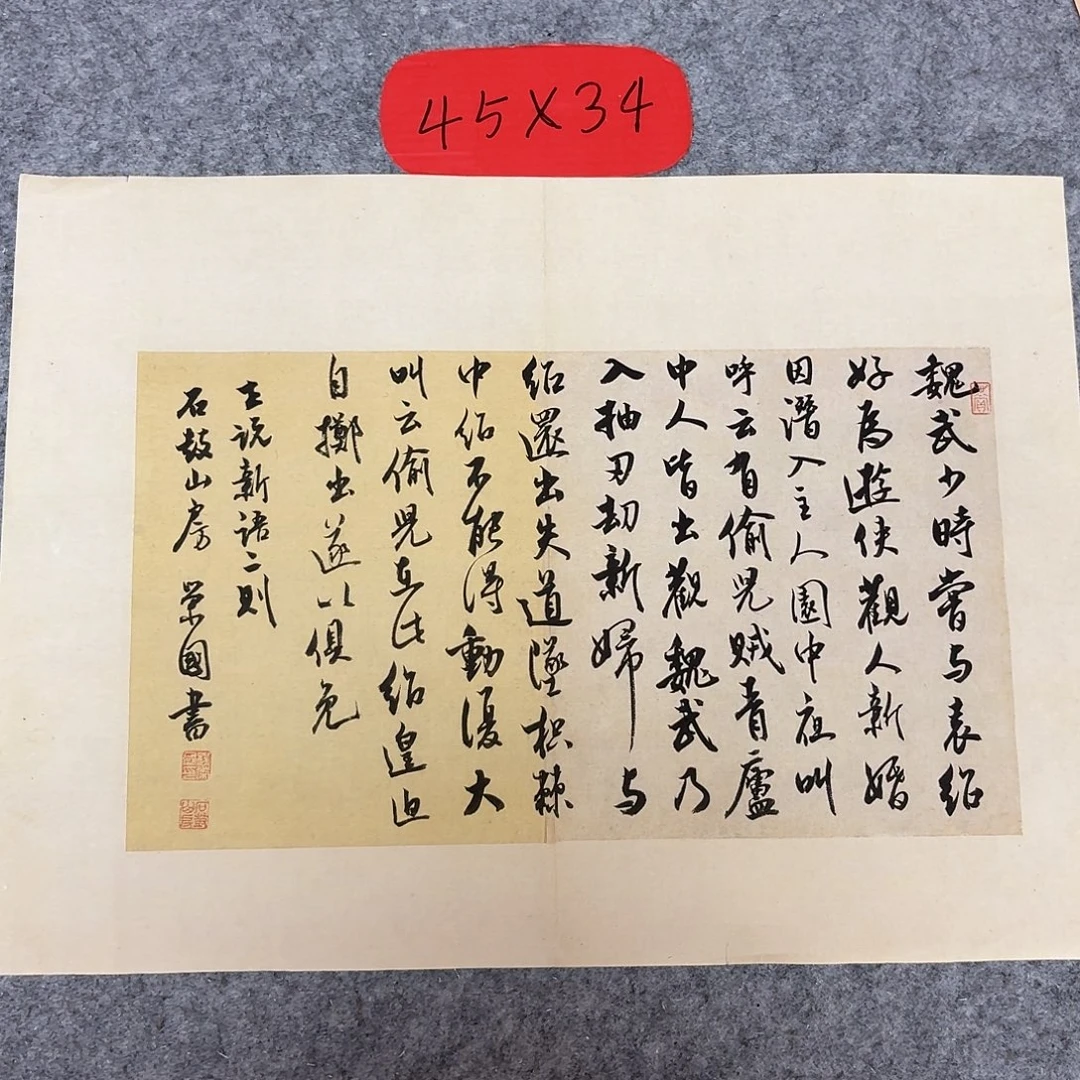 45X34
魏武少時嘗与袁紹
好為遊俠觀人新婚
因潛入主人園中夜叫
呼云有偷兒賊青廬
中人皆出觀魏武乃
入抽刃劫新婦与
紹還出失道墜枳棘
中紹不能得動復大
叫云偷兒在此紹遑迫
自擲出遂以俱免
世说新語二則
石鼓山房 荣國書